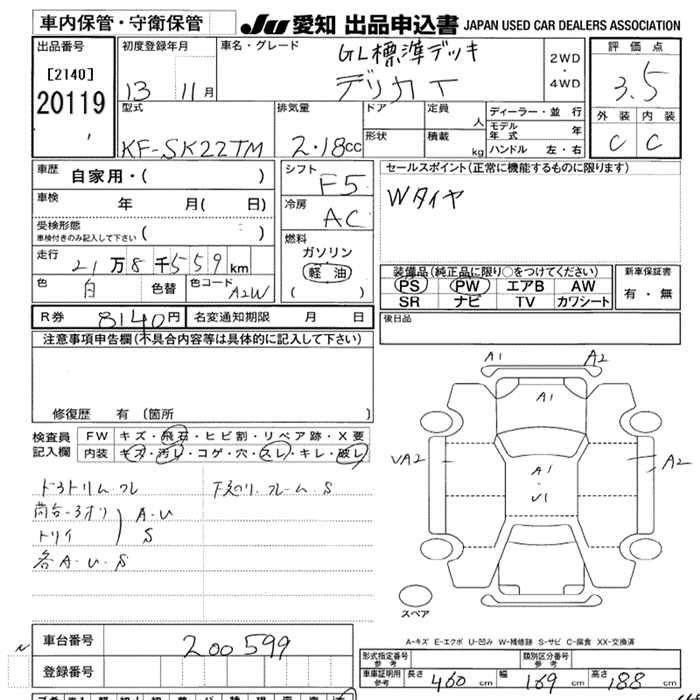 車内保管・守衛保管
JU 愛知 出品申込書 JAPAN USED CAR DEALERS ASSOCIATION
出品番号
[2140]
20119
初度登録年月
13 11月
車名・グレード
GL標準デッキ
デリカT
2WD
・
4WD
評価点
3.5
外装 内装
C C
型式
KF-SK22TM
排気量
2.18cc
ドア
形状
定員
人
積載
kg
ディーラー・並行
モデル年式 年
ハンドル 左・右
車歴
自家用・( )
車検
年 月( 日)
受検形態
車検付きのみ記入して下さい ( )
走行
21万8千559km
色
白
色替
色コード
A2W
シフト
F5
冷房
AC
燃料
ガソリン
軽油
( )
セールスポイント(正常に機能するものに限ります)
Wタイヤ
装備品(純正品に限り○をつけてください)
PS PW エアB AW
SR ナビ TV カワシート
新車保証書
有・無
R券 8140円 名変通知期限 月 日
後日品
注意事項申告欄(不具合内容等は具体的に記入して下さい)
修復歴 有 〔箇所 〕
検査員記入欄
FW キズ・飛石・ヒビ割・リペア跡・X要
内装 キズ・汚レ・コゲ・穴・スレ・キレ・破レ
A・U
S
各A・U・S
A1 A2
A1
VA2
A1
・
U1
A2
スペア
A-キズ E-エクボ U-凹み W-補修跡 S-サビ C-腐食 XX-交換済
車台番号
200599
登録番号
形式指定番号
参考
類別区分番号
参考
車庫証明用
参考
長さ 460cm 幅 169cm 高さ 188cm